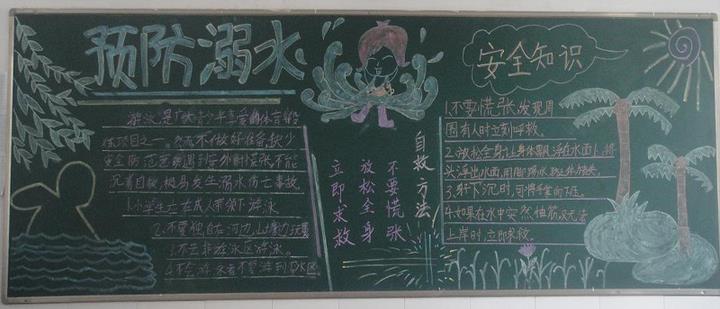 预防溺水
游泳是广大青少年喜爱的体育锻
炼项目之一。然而不做好准备缺少
安全防范意识遇到意外时慌张不能
沉着自救,极易发生溺水伤亡事故
1.小学生应在成人带领下游泳
2.不要独自在河边、山塘边玩耍
3.不去非游泳区游泳。
4.不会游泳者不要游到深水区
自救方法
不要慌张
放松全身
立即求救
安全知识
1.不要慌张发现周
围有人时立刻呼救
2.放松全身让身体飘浮在水面上,将
头浮出水面,用脚踢水
3.身体下沉时,可将手掌向下压。
4.如果在水中突然抽筋又无法
上岸时立即求救